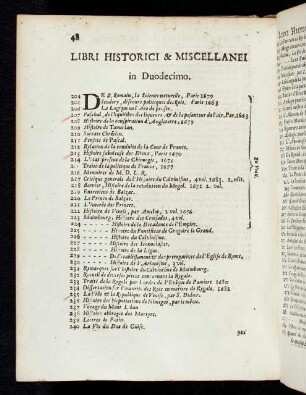 48
LIBRI HISTORICI & MISCELLANEI
in Duodecimo.
204 DE S. Romain, la Science naturelle, Paris 1679
205 Scudery, discours politiques des Rois, Paris 1663
206
207 Paschal, de l'equilibre des liqueurs, & de la pesanteur de l'air, Par. 1663
208 Histoire de la conjuration d'Angleterre, 1679
209 Histoire de Tamerlan.
210 Socrate Chrestien.
211 Pensées de Pascal.
212 Relation de la conduite de la Cour de France.
213 Histoire fabuleuse des Dieux, Paris 1670
214 L'Art de la Chirurgie, 1671
215 Traité de la politique de France, 1677
216 Memoires de M. D. L. R.
217 Critique generale de l'Histoire du Calvinisme, 2 vol. 1683.
218 Bernier, Histoire de la revolution du Mogol, 1671 2. vol.
219 Entretiens de Balzac.
220 Le Prince de Balzac.
221
222 Histoire de Venise, par Amelot, 3 vol. 1676
223 Maimbourg, Histoire des Croisades, 4 vol.
224 - - - - - Histoire de la Decadence de l'Empire.
225 - - - - - Histoire du Pontificat de Gregoire le Grand.
226 - - - - - Histoire du Calvinisme.
227 - - - - - Histoire des Iconoclastes.
228 - - - - - Histoire de la Ligue.
229 - - - - - De l'établissement & des prerogatives de l'Eglise de Rome,
230 - - - - - Histoire de l'Arianisme, 3 vol.
231 Remarques sur l'Histoire du Calvinisme de Maimbourg.
232 Recueil de diverses pieces concernant la Regale.
233 Traité de la Regale par l'ordre de l'Evêque de Pamiers 1680
234 Dissertation sur l'autorité des Rois en matiere de Regale. 1682
235 La Ville & la Republique de Venise, par S. Didier.
236 Histoire des Negotiations de Nimegue, par le même.
237 Voyage du Mont Liban
238 Histoire abbregée des Martyrs.
239 Lettres de Patin.
240 La Vie du Duc de Guise.